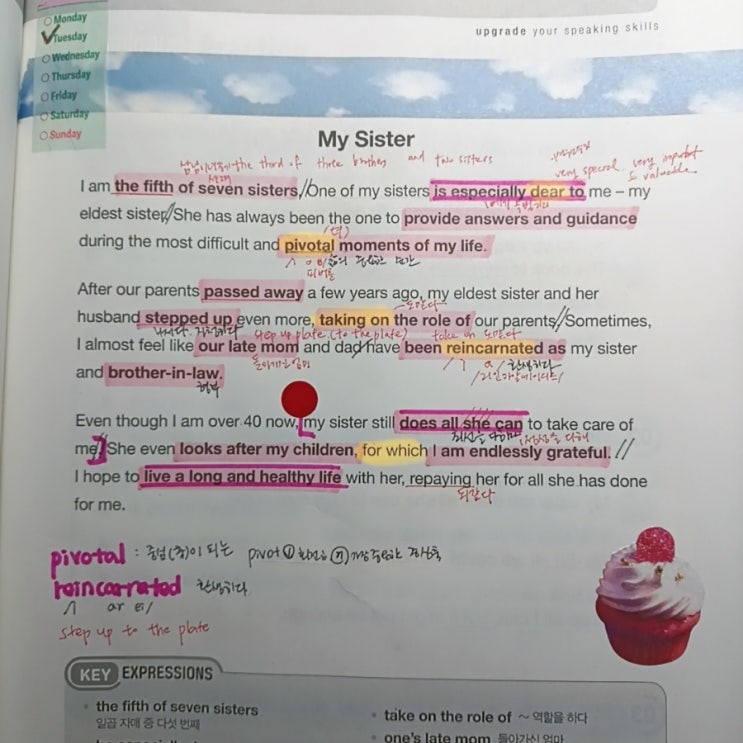 Monday
Tuesday
Wednesday
Thursday
Friday
Saturday
Sunday
upgrade your speaking skills
My Sister
the third of three brothers and two sisters
very special. very important
& valuable.
I am the fifth of seven sisters, One of my sisters is especially dear to me – my
eldest sister. She has always been the one to provide answers and guidance
during the most difficult and pivotal moments of my life.
After our parents passed away a few years ago, my eldest sister and her
husband stepped up even more, taking on the role of our parents. Sometimes,
step up plate (to the plate) take on 도맡다
I almost feel like our late mom and dad have been reincarnated as my sister
돌아가신 엄마 환생하다
and brother-in-law.
형부
Even though I am over 40 now, my sister still does all she can to take care of
me. She even looks after my children, for which I am endlessly grateful.
I hope to live a long and healthy life with her, repaying her for all she has done
되갚다
for me.
pivotal : 중심(축)이 되는 pivot
reincarrated 환생하다
step up to the plate
KEY EXPRESSIONS
the fifth of seven sisters
일곱 자매 중 다섯 번째
take on the role of ~ 역할을 하다
one's late mom 돌아가신 엄마